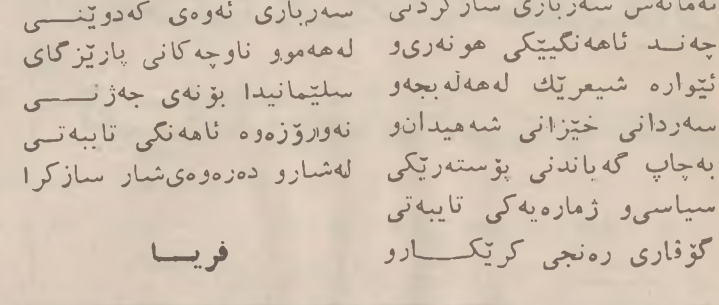 ئەمانەش سەرباری ساز کردنی
چەنـد ئاهەنگیێکی هونەری‌و
ئێواره شیعرێك لەهەڵەبجەو
سەردانی خێزانی شەهیدان‌و
بەچاپ گەیاندنی پۆستەرێکی
سیاسی‌و ژمارەیەکی تایبەتی
گۆڤاری رەنجی کرێکـــارو
سەرباری ئەوەی کەدوێنـــی
لەهەموو ناوچەکانی پارێزگای
سلێمانیدا بۆنەی جەژنـــی
نەورۆزەوە ئاهەنگی تایبەتـی
لەشارو دەرەوەی‌شار سازکرا
فریـــا